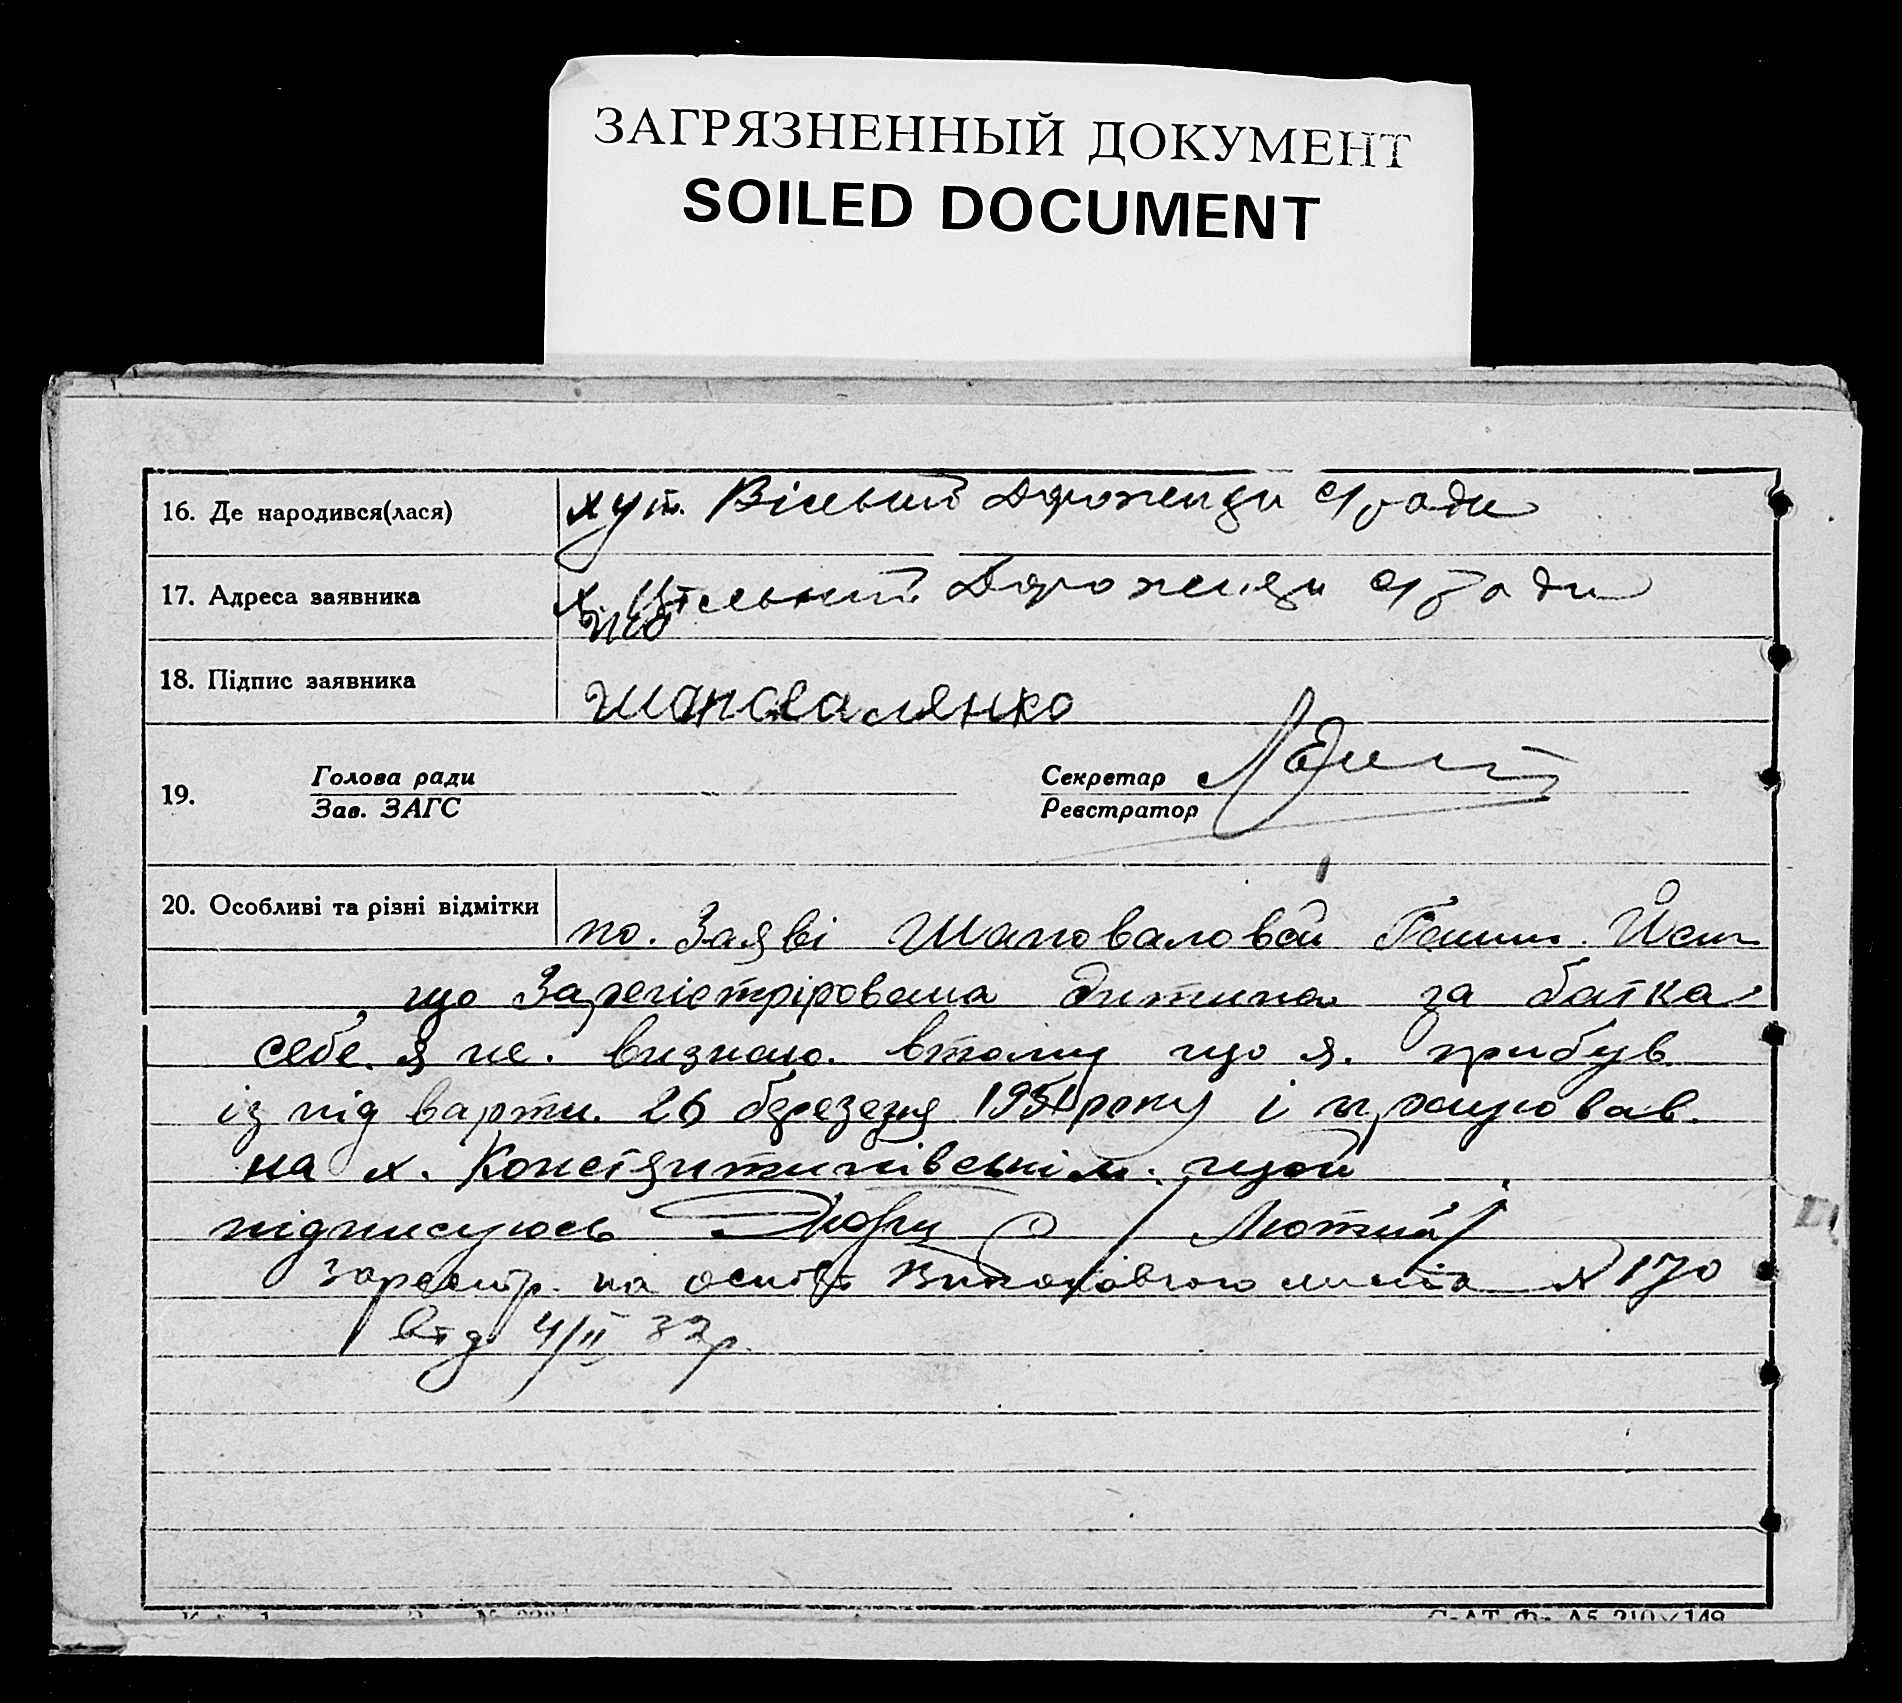 ЗАГРЯЗНЕННЫЙ ДОКУМЕНТ
SOILED DOCUMENT
16. Де народився(лася) хут. Вільний с/ради
17. Адреса заявника х. с/ради
18. Підпис заявника Шаповаленко
19. Голова ради Секретар
Зав. ЗАГС Реєстратор
20. Особливі та різні відмітки по. Заяві Шаповаловой Ганни
що Зарегістрірована дитина за батка
себе. я не. визнаю. втому що я. прибув
із під варти. 26 березеня 1931 року і працював.
на х. щой
підписуюсь / Лютий /
зареєстр. на основі листа № 170
від 4/II 32р.